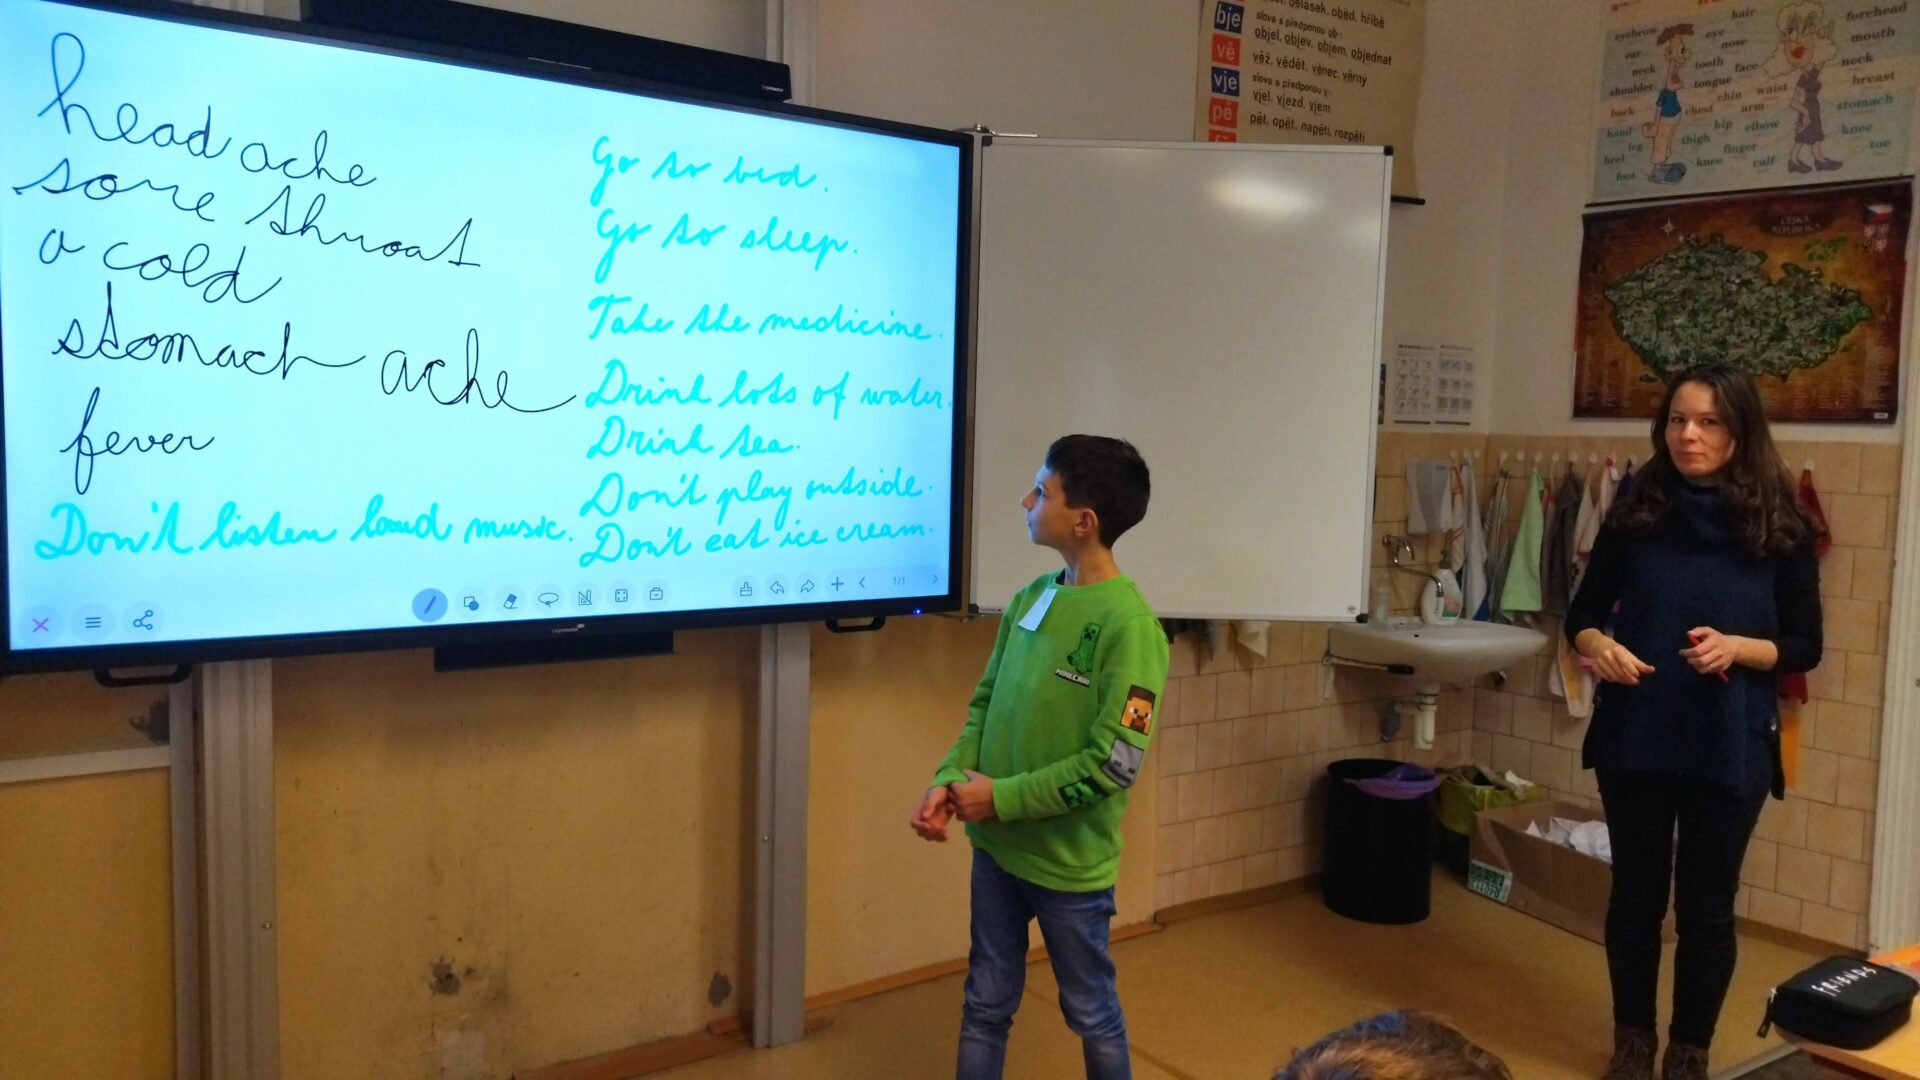 head ache
sore throat
a cold
stomach ache
fever
Don't listen loud music.
Go to bed.
Go to sleep.
Take the medicine.
Drink lots of water.
Drink tea.
Don't play outside.
Don't eat ice cream.
1/1
bje
oběd, hříbě
slova s předponou ob-
objel, objev, objem, objednat
vě
věž, vědět, věnec, věrný
vje
slova s předponou v-
vjel, vjezd, vjem
pě
pět, opět, napětí, rozpětí
eyebrow
hair
forehead
ear
eye
nose
mouth
neck
tooth
face
neck
shoulder
tongue
chin
waist
breast
back
chest
arm
stomach
hand
hip
elbow
knee
leg
thigh
finger
toe
heel
knee
calf
foot
ČESKÁ
REPUBLIKA
MINECRAFT
FRIENDS